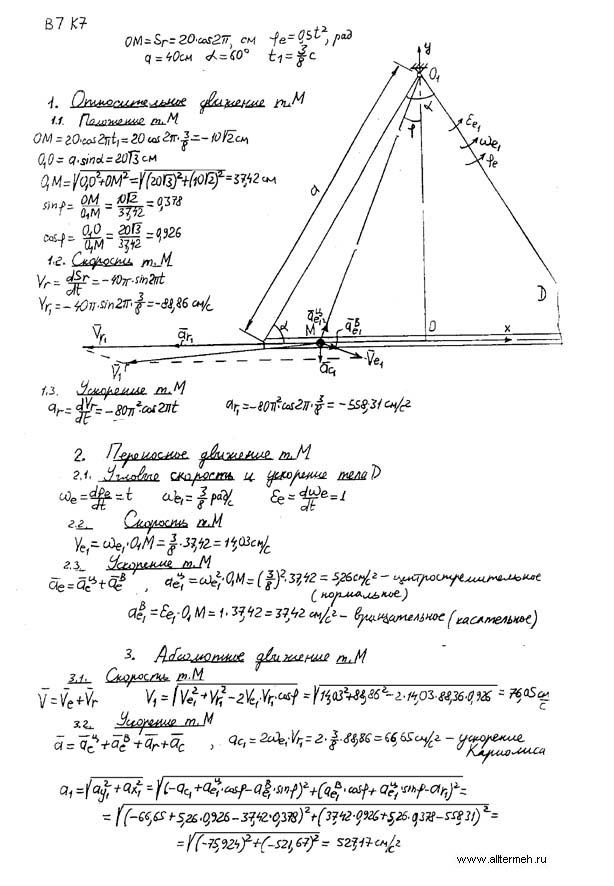 В7 К7
OM=Sr=20·cos2π, см φe=0,5t², рад
a=40см α=60° t1=3/8 c
1. Относительное движение т.М
1.1. Положение т.М
OM=20·cos2πt1=20cos2π·3/8=-10√2см
O1O=a·sinα=20√3см
O1M=√(O1O²+OM²)=√((20√3)²+(10√2)²)=37,42см
sinφ=OM/O1M=10√2/37,42=0,378
cosφ=O1O/O1M=20√3/37,42=0,926
1.2. Скорость т.М
Vr=dSr/dt=-40π·sin2πt
Vr1=-40π·sin2π·3/8=-88,86 см/с
y
O1
α
φ
εe1
ωe1
φe
a
D
α
M
āe1ц
āe1в
O
x
V̄r1
ār1
V̄1
āc1
V̄e1
1.3. Ускорение т.М
ar=dVr/dt=-80π²·cos2πt ar1=-80π²cos2π·3/8=-558,31 см/с²
2. Переносное движение т.М
2.1. Угловые скорость и ускорение тела D
ωe=dφe/dt=t ωe1=3/8 рад/с εe=dωe/dt=1
2.2. Скорость т.М
Ve1=ωe1·O1M=3/8·37,42=14,03см/с
2.3. Ускорение т.М
āe=āeц+āeв, ae1ц=ωe1²·O1M=(3/8)²·37,42=5,26см/с²-центростремительное
(нормальное)
ae1в=εe1·O1M=1·37,42=37,42 см/с²-вращательное (касательное)
3. Абсолютное движение т.М
3.1. Скорость т.М
V̄=V̄e+V̄r V1=√(Ve1²+Vr1²-2Ve1·Vr1·cosφ)=√(14,03²+88,86²-2·14,03·88,36·0,926)=76,05 см/с
3.2. Ускорение т.М
ā=āeц+āeв+ār+āc, ac1=2ωe1·Vr1=2·3/8·88,86=66,65см/с²-ускорение
Кариолиса
a1=√(ay1²+ax1²)=√((-ac1+ae1ц·cosφ-ae1в·sinφ)²+(ae1в·cosφ+ae1ц·sinφ-ar1)²)=
=√((-66,65+5,26·0,926-37,42·0,378)²+(37,42·0,926+5,26·0,378-558,31)²)=
=√((-75,924)²+(-521,67)²)=527,17 см/с²
www.alltermeh.ru